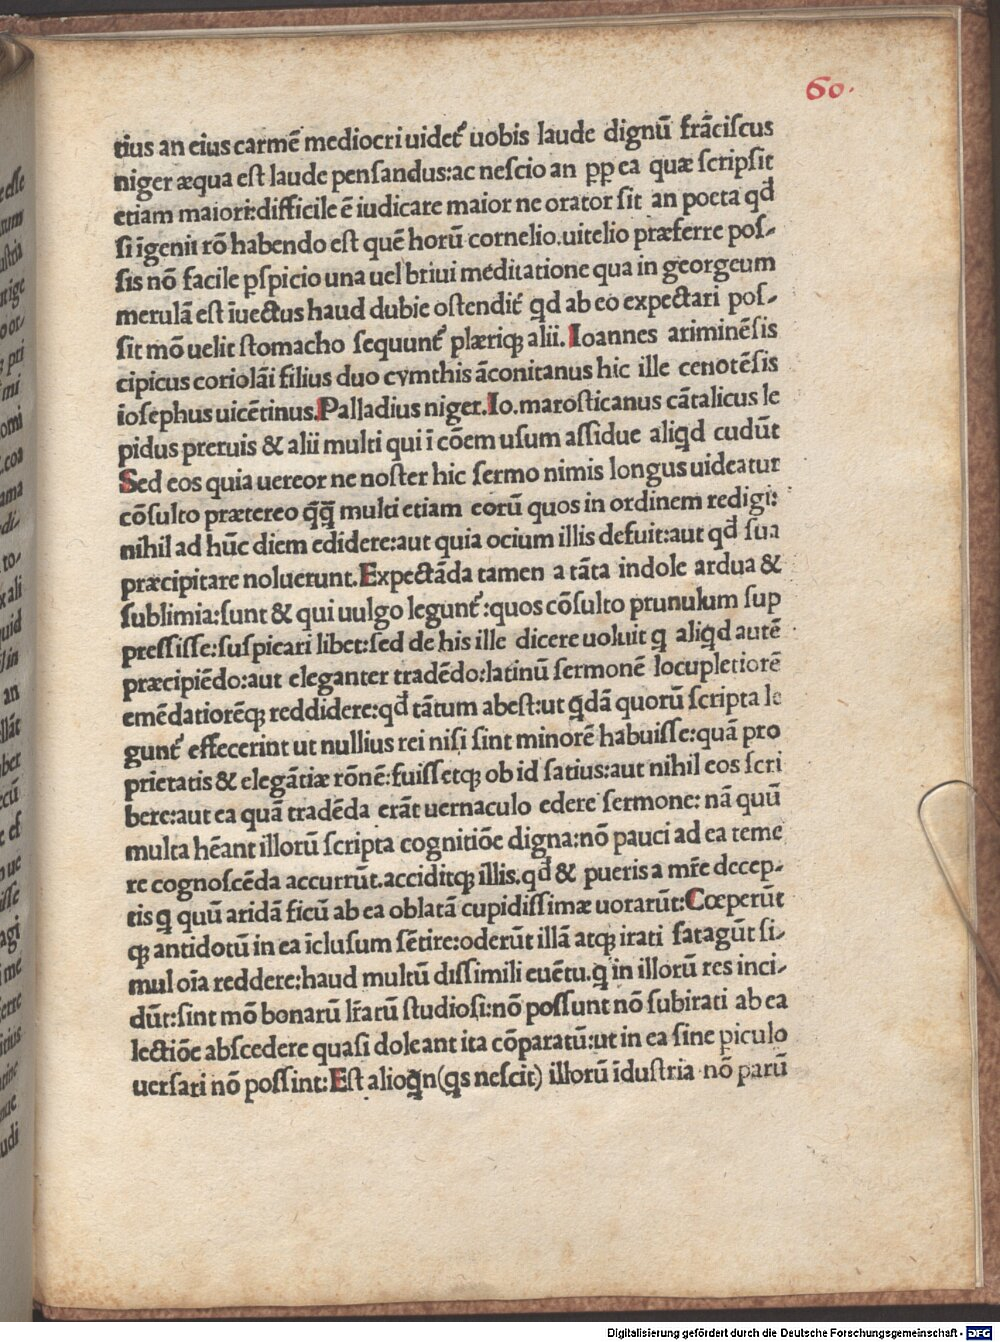 60.
tius an eius carmē mediocri uidet᷑ uobis laude dignū frāciscus
niger æqua est laude pensandus:ac nescio an ꝓpea quæ scripsit
etiam maiori:difficile ē iudicare maior ne orator sit an poeta qđ
si īgenii rō habendo est quē horū cornelio.uitelio præferre pos-
sis nō facile ꝑspicio una uel briui meditatione qua in georgeum
merulā est īuectus haud dubie ostendit᷑ qd ab eo expectari pos-
sit mō uelit stomacho sequunt᷑ plæriqꝫ alii. Ioannes ariminēsis
cipicus coriolāi filius duo cymthis āconitanus hic ille cenotēsis
iosephus uicētinus.Palladius niger.Io.marosticanus cātalicus le
pidus preruis & alii multi qui ī cōem usum assidue aliqd cudūt
Sed eos quia uereor ne noster hic sermo nimis longus uideatur
cōsulto prætereo q̄q̄ multi etiam eorū quos in ordinem redigi:
nihil ad hūc diem edidere:aut quia ocium illis defuit:aut qđ sua
præcipitare noluerunt.Expectāda tamen a tāta indole ardua &
sublimia:sunt & qui uulgo legunt᷑:quos cōsulto prunulum sup
pressisse:suspicari libet:sed de his ille dicere uoluit q aliqd autē
præcipiēdo:aut eleganter tradēdo:latinū sermonē locupletiorē
emēdatiorēqꝫ reddidere:qđ tātum abest:ut qdā quorū scripta le
gunt᷑ effecerint ut nullius rei nisi sint minorē habuisse:quā pro
prietatis & elegātiæ rōnē:fuissetqꝫ ob id satius:aut nihil eos scri
bere:aut ea quā tradēda erāt uernaculo edere sermone: nā quū
multa hēant illorū scripta cognitiōe digna:nō pauci ad ea teme
re cognoscēda accurrūt.acciditqꝫ illis.qđ & pueris a mr̄e decep-
tis q quū aridā ficū ab ea oblatā cupidissimæ uorarūt:Cœperūt
qꝫ antidotū in ea īclusum sētire:oderūt illā atqꝫ irati satagūt si-
mul oīa reddere:haud multū dissimili euētu.q in illorū res inci-
dūt:sint mō bonarū lr̄arū studiosi:nō possunt nō subirati ab ea
lectiōe abscedere quasi doleant ita cōparatū:ut in ea sine piculo
uersari nō possint:Est alioqn(qs nescit) illorū īdustria nō parū
Digitalisierung gefördert durch die Deutsche Forschungsgemeinschaft - DFG